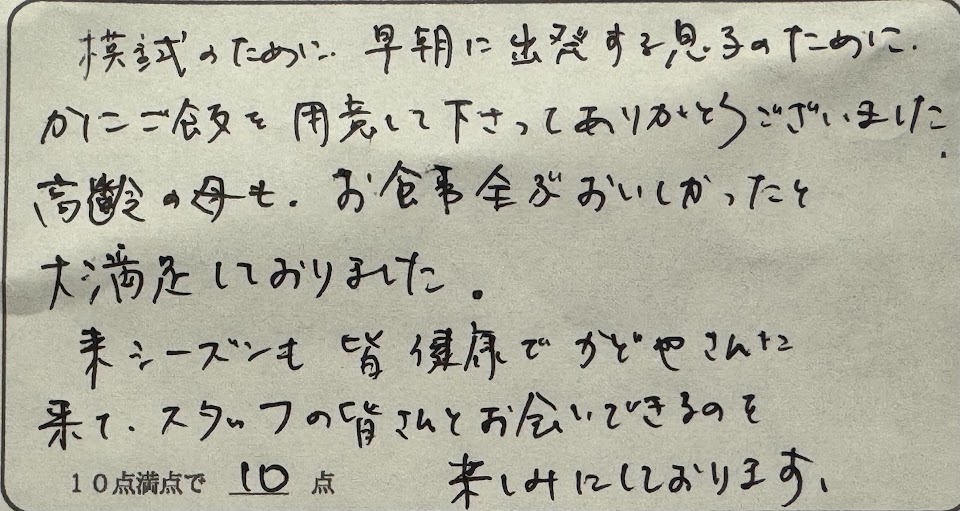 模試のために、早朝に出発する息子のために、
かにご飯を用意して下さってありがとうございました。
高齢の母も、お食事全ぶおいしかったと
大満足しておりました。
来シーズンも皆健康でかどやさんに
来て、スタッフの皆さんとお会いできるのを
楽しみにしております。
10点満点で 10 点